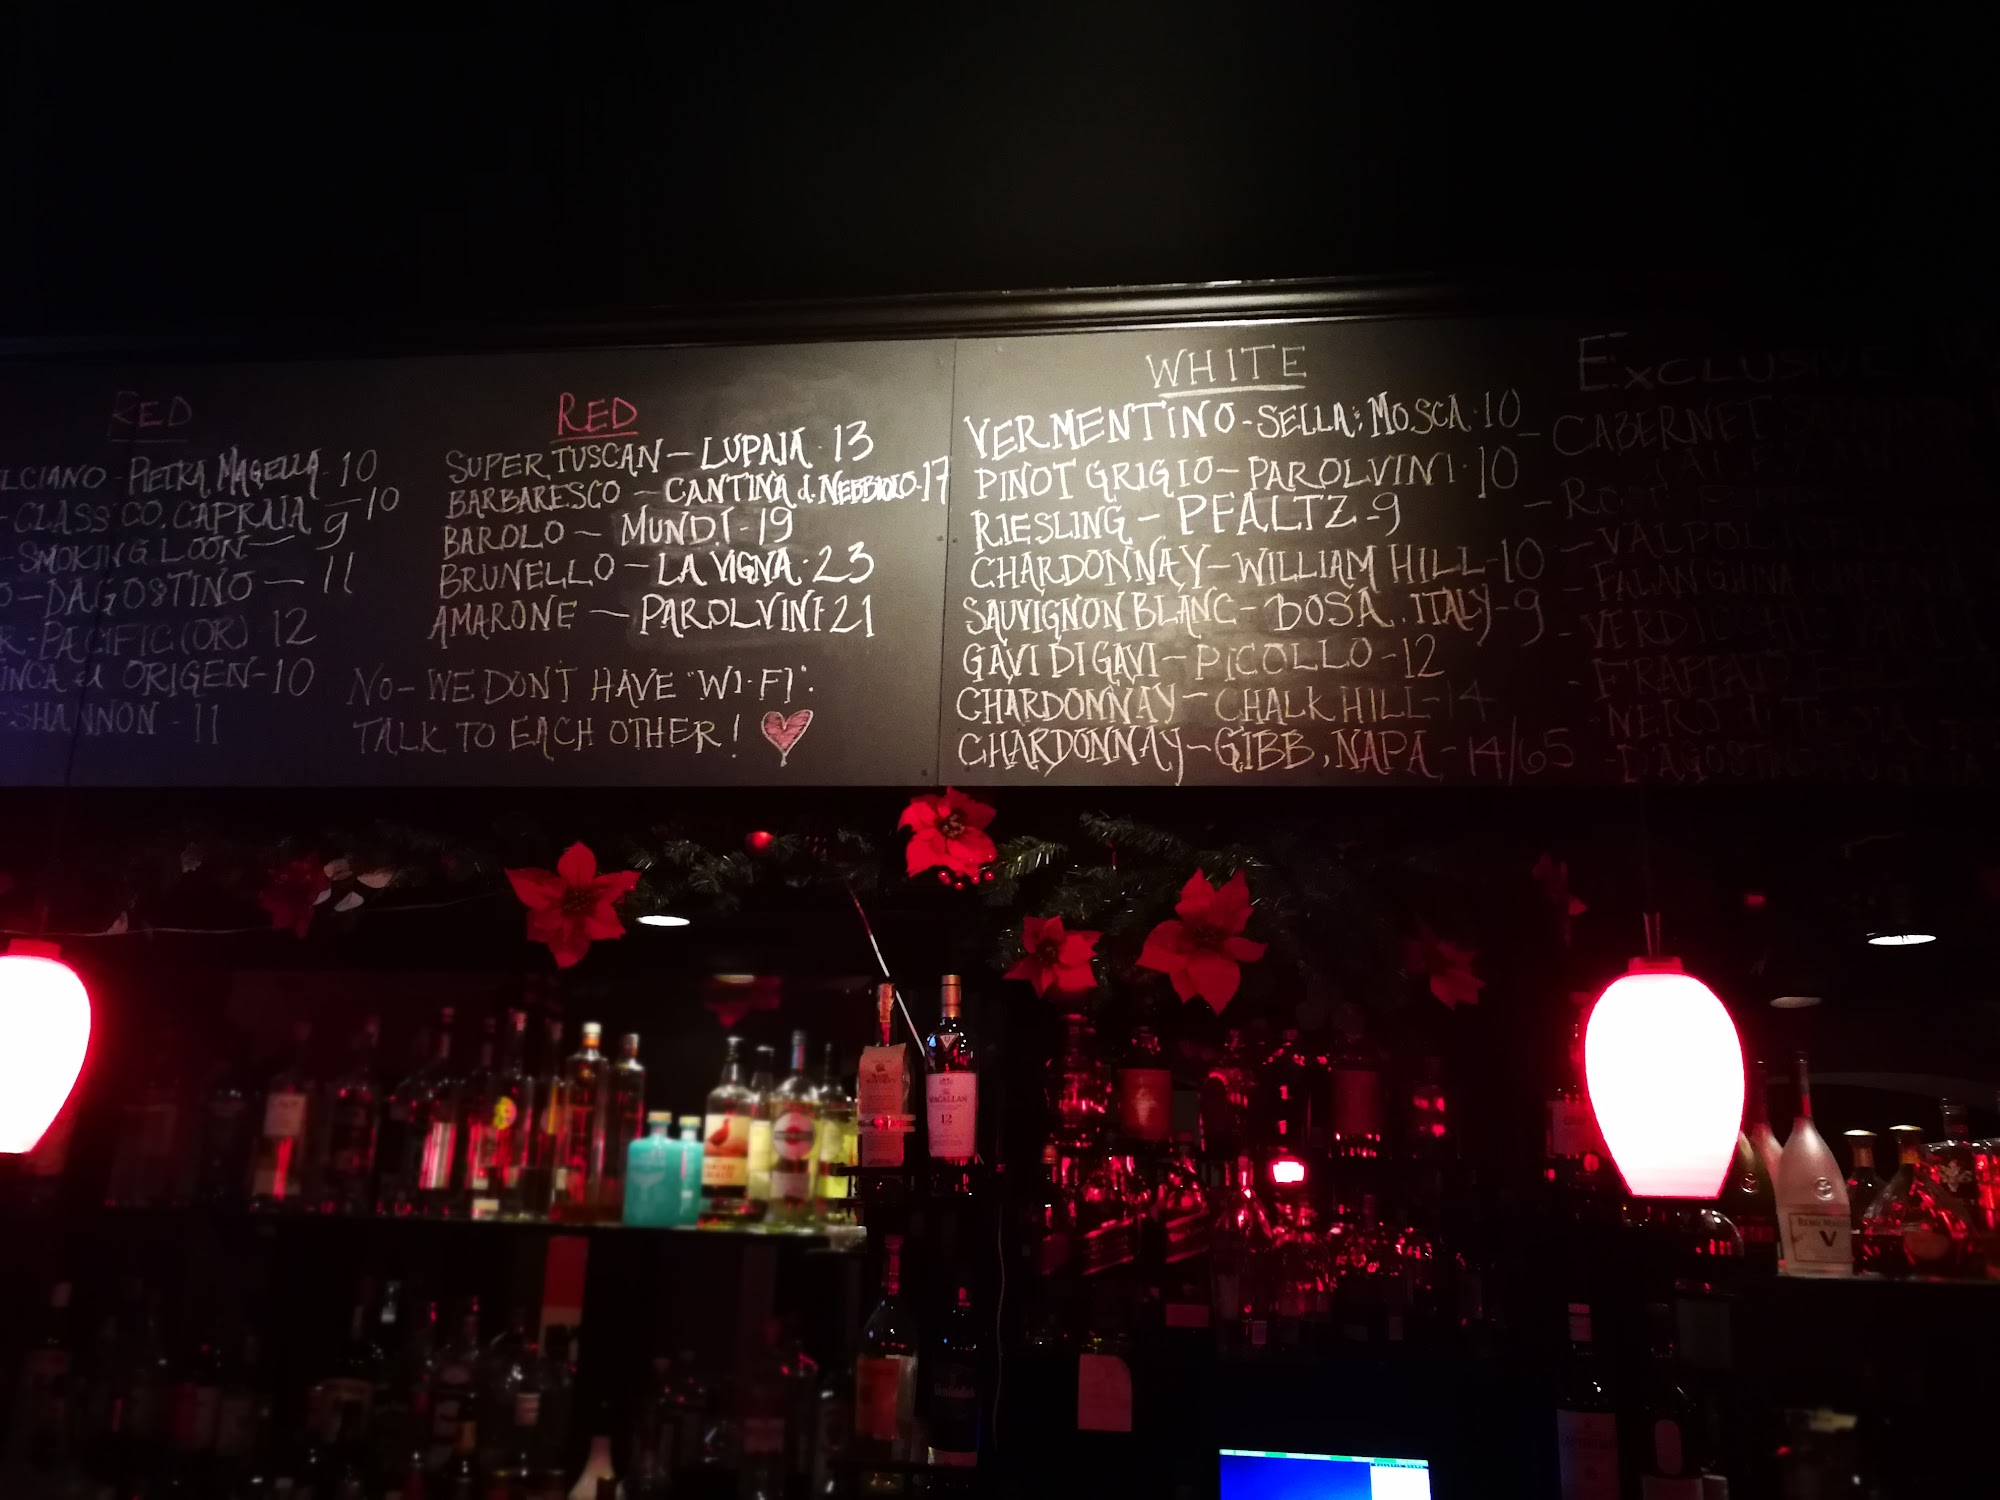 RED
LCIANO - PIETRA MAGELLA - 10
- CLASSICO, CAPRAIA - 10
- SMOKING LOON - 9
O - DAGOSTINO - 11
R - PACIFIC (OR) 12
INCA el ORIGEN - 10
- SHANNON - 11
RED
SUPER TUSCAN - LUPAIA · 13
BARBARESCO - CANTINA d. NEBBIOLO · 17
BAROLO - MUNDI - 19
BRUNELLO - LA VIGNA · 23
AMARONE - PAROLVINI · 21
NO - WE DON'T HAVE "WI-FI".
TALK TO EACH OTHER!
WHITE
VERMENTINO - SELLA; MOSCA · 10
PINOT GRIGIO - PAROLVINI · 10
RIESLING - PFALTZ - 9
CHARDONNAY - WILLIAM HILL - 10
SAUVIGNON BLANC - BOSA, ITALY - 9
GAVI DI GAVI - PICOLLO - 12
CHARDONNAY - CHALK HILL - 14
CHARDONNAY - GIBB, NAPA - 14/65
EXCLUSIVE
- CABERNET
- VALPOL
- FALANGHINA
- VERDICCHIE
- FRAPPATO
- NERO di TROIA
- D'AGOSTINO
MACALLAN
12
V